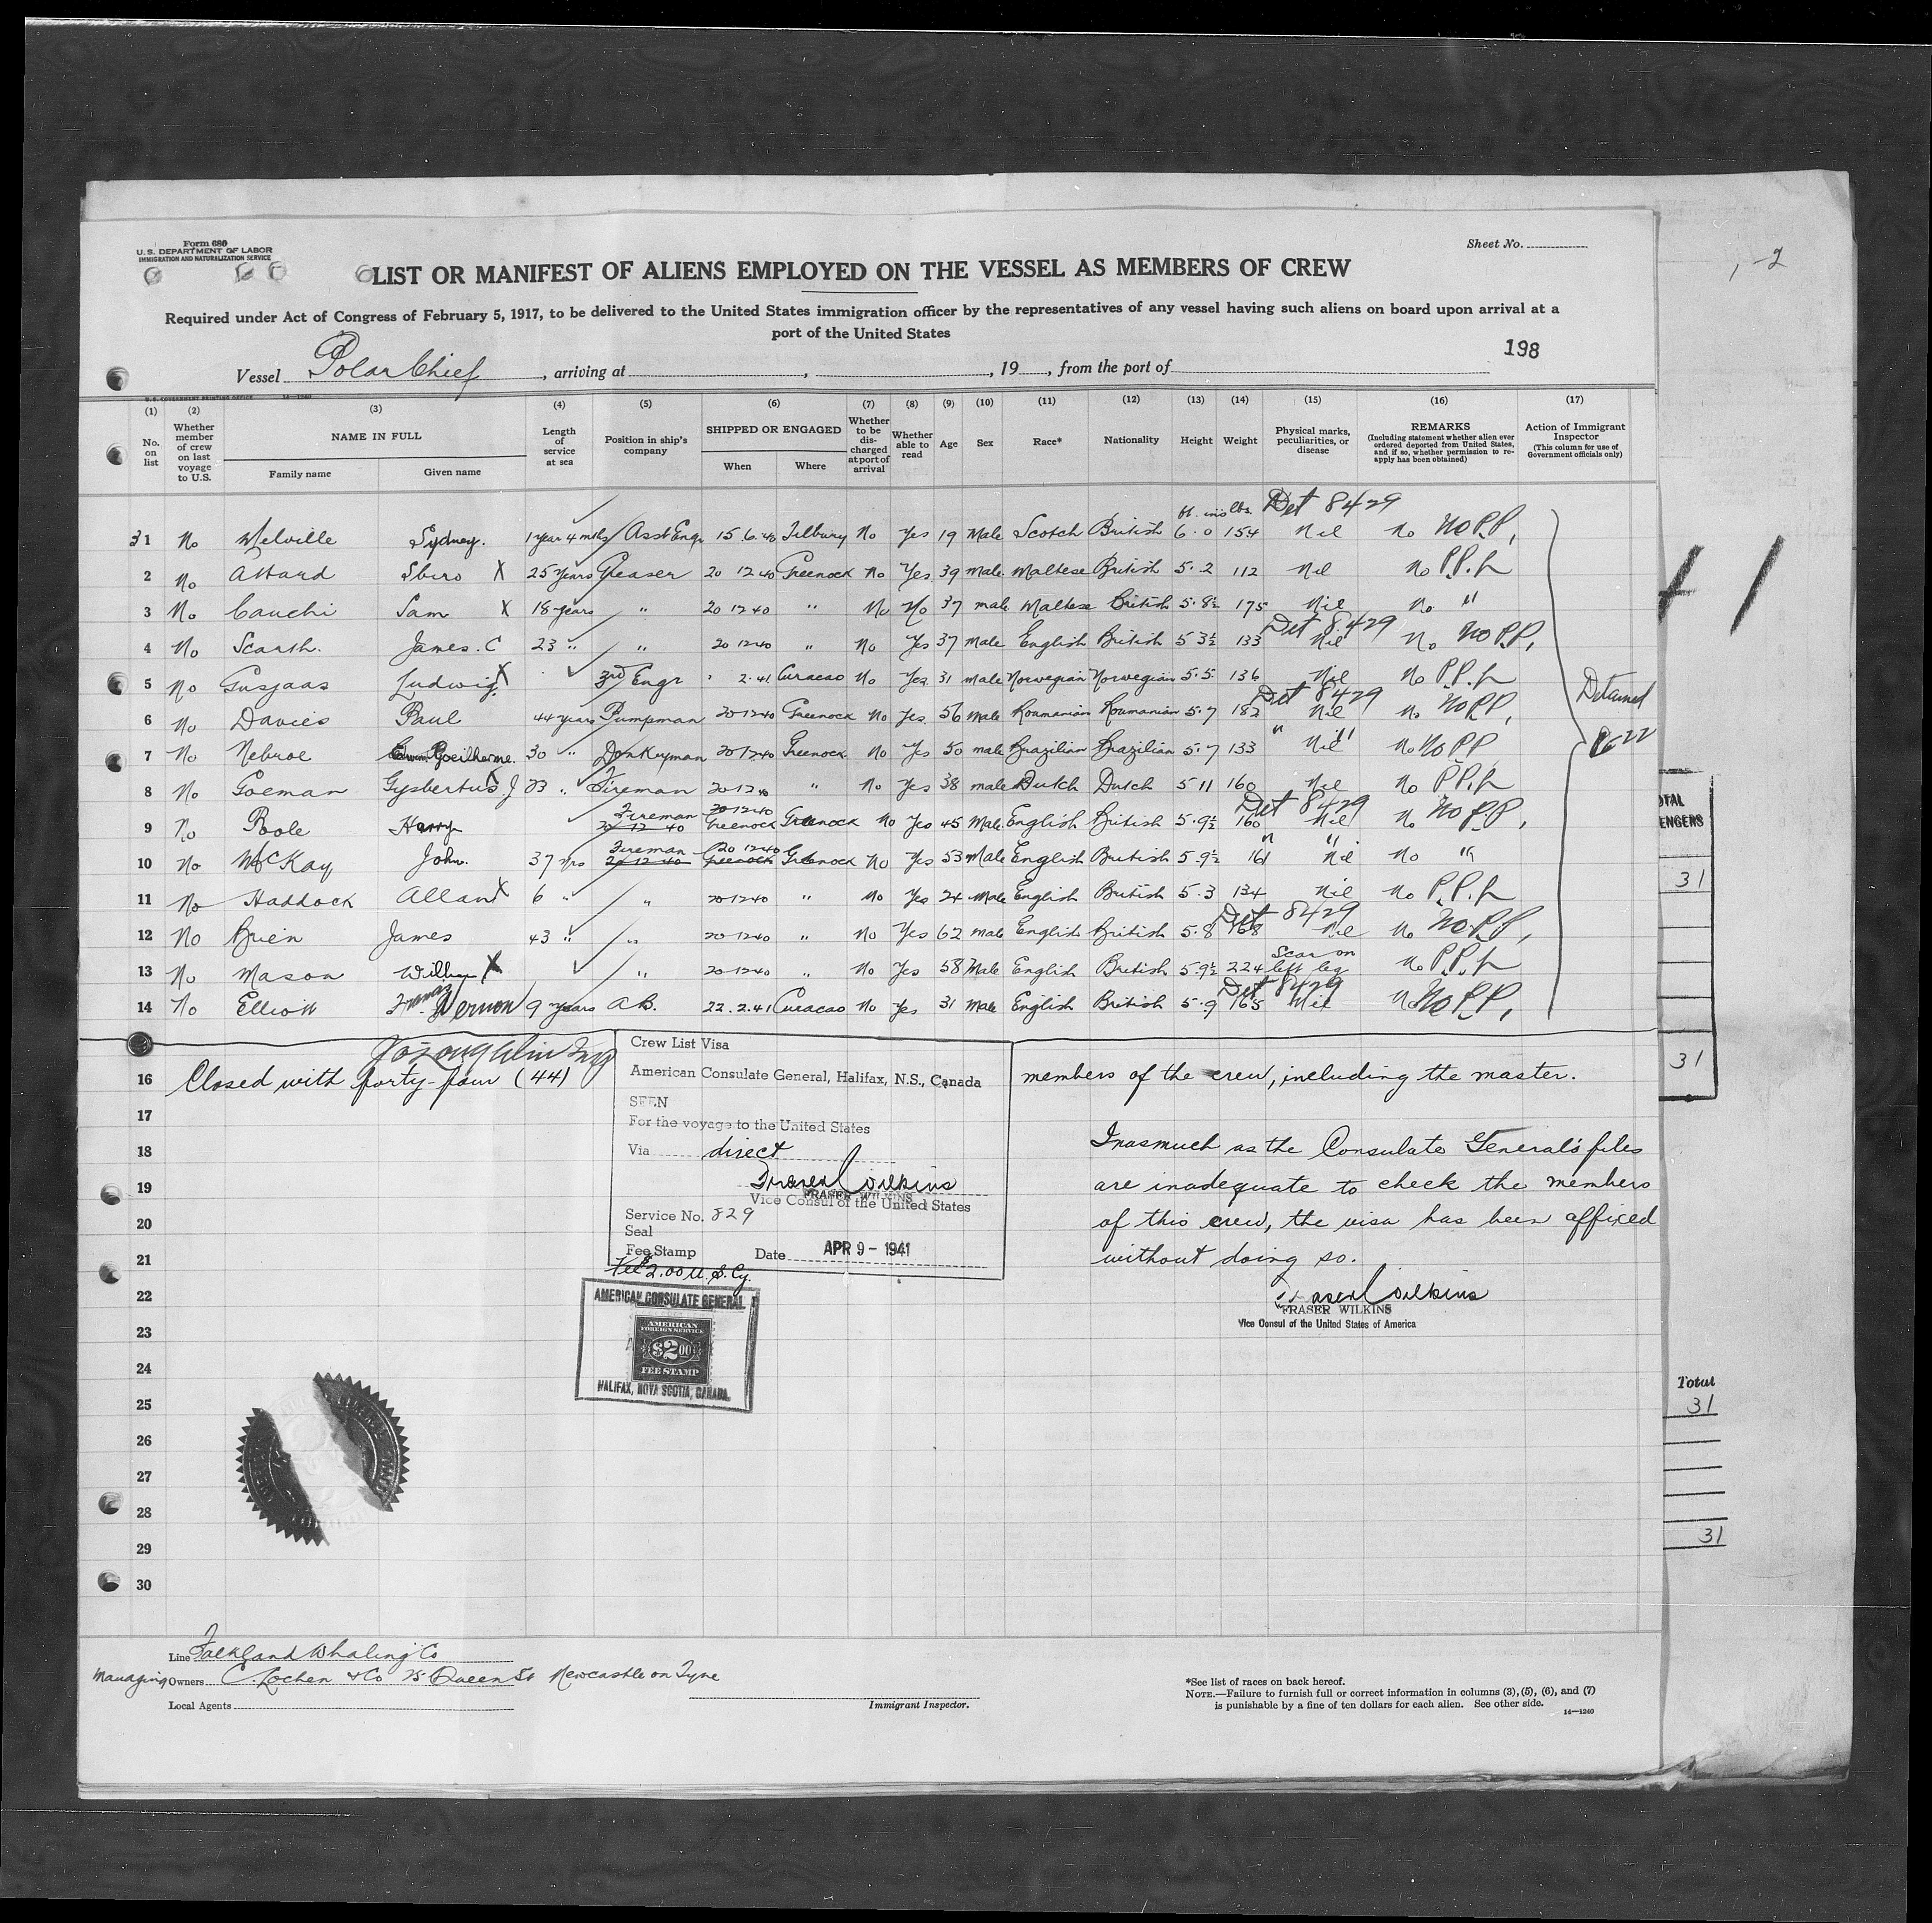 Form 680
U. S. DEPARTMENT OF LABOR
IMMIGRATION AND NATURALIZATION SERVICE
Sheet No.
LIST OR MANIFEST OF ALIENS EMPLOYED ON THE VESSEL AS MEMBERS OF CREW
, -2
Required under Act of Congress of February 5, 1917, to be delivered to the United States immigration officer by the representatives of any vessel having such aliens on board upon arrival at a
port of the United States
198
Vessel Polar Chief, arriving at , , 19 , from the port of
U. S. GOVERNMENT PRINTING OFFICE 14—1240
(1) (2) (3) (4) (5) (6) (7) (8) (9) (10) (11) (12) (13) (14) (15) (16) (17)
No. on list
Whether member of crew on last voyage to U.S.
NAME IN FULL
Family name
Given name
Length of service at sea
Position in ship's company
SHIPPED OR ENGAGED
When
Where
Whether to be discharged at port of arrival
Whether able to read
Age
Sex
Race*
Nationality
Height
Weight
Physical marks, peculiarities, or disease
REMARKS
(Including statement whether alien ever ordered deported from United States, and if so, whether permission to reapply has been obtained)
Action of Immigrant Inspector
(This column for use of Government officials only)
ft. ins lbs. Det 8429
31 No Melville Sydney. 1 year 4 mths Asst Engr 15.6.40 Tilbury No Yes 19 Male Scotch British 6.0 154 Nil No No P.P.,
2 No Attard Sbiro X 25 years Greaser 20 12 40 Greenock No Yes 39 Male Maltese British 5.2 112 Nil No P.P.
3 No Cauchi Sam X 18 years " 20 12 40 " No No 37 male Maltese British 5.8½ 175 Nil No "
Det 8429
4 No Scarth. James. C 23 " " 20 12 40 " No Yes 37 Male English British 5 3½ 133 Nil No No P.P.,
5 No Gusjaas Ludwig. X 3rd Engr 2.41 Curacao No Yes 31 male Norwegian Norwegian 5.5. 136 Nil No P.P.
Det 8429
6 No Davies Paul 44 years Pumpman 20 12 40 Greenock No Yes 56 Male Roumanian Roumanian 5.7 182 Nil No No P.P.,
Detained
7 No Nebroe Goeilherme. 30 " Donkeyman 20 12 40 Greenock No Yes 50 male Brazilian Brazilian 5.7 133 " Nil " No No P.P.
8 No Goeman Gysbertus J X 23 " Fireman 20 12 40 " No Yes 38 male Dutch Dutch 5 11 160 Nil No P.P.
Det 8429
9 No Poole Harry Fireman 20 12 40 Greenock 20 12 40 Greenock No Yes 45 Male English British 5.9½ 160 Nil No No P.P.,
10 No McKay John. 37 yrs Fireman 20 12 40 20 12 40 Greenock Greenock No Yes 53 Male English British 5.9½ 161 " " Nil No "
11 No Haddock Allan X 6 " " 20 12 40 " No Yes 24 Male English British 5.3 134 Nil No P.P.
Det 8429
12 No Brien James 43 " " 20 12 40 " No Yes 62 male English British 5.8 168 Nil No No P.P.,
13 No Mason X " 20 12 40 " No Yes 58 Male English British 5.9½ 224 Scar on left leg No P.P.
Det 8429
14 No Elliott Vernon 9 years A.B. 22.2.41 Curacao No Yes 31 Male English British 5.9 165 Nil No No P.P.,
16 Closed with forty-four (44) members of the crew, including the master.
Crew List Visa
American Consulate General, Halifax, N.S., Canada
SEEN
For the voyage to the United States
Via direct
Fraser Wilkins
FRASER WILKINS
Vice Consul of the United States
Service No. 829
Seal
Fee Stamp Date APR 9 - 1941
Fee $2.00 U.S. Cy.
Inasmuch as the Consulate General's files
are inadequate to check the members
of this crew, the visa has been affixed
without doing so.
Fraser Wilkins
FRASER WILKINS
Vice Consul of the United States of America
AMERICAN CONSULATE GENERAL
AMERICAN
FOREIGN SERVICE
$2.00
FEE STAMP
HALIFAX, NOVA SCOTIA, CANADA.
17
18
19
20
21
22
23
24
25
26
27
28
29
30
41
TOTAL
PASSENGERS
31
31
Total
31
31
Line Falkland Whaling Co
Managing Owners C. Lochen & Co 25 Queen St Newcastle on Tyne
Local Agents
Immigrant Inspector.
*See list of races on back hereof.
NOTE.—Failure to furnish full or correct information in columns (3), (5), (6), and (7)
is punishable by a fine of ten dollars for each alien. See other side.
14—1240